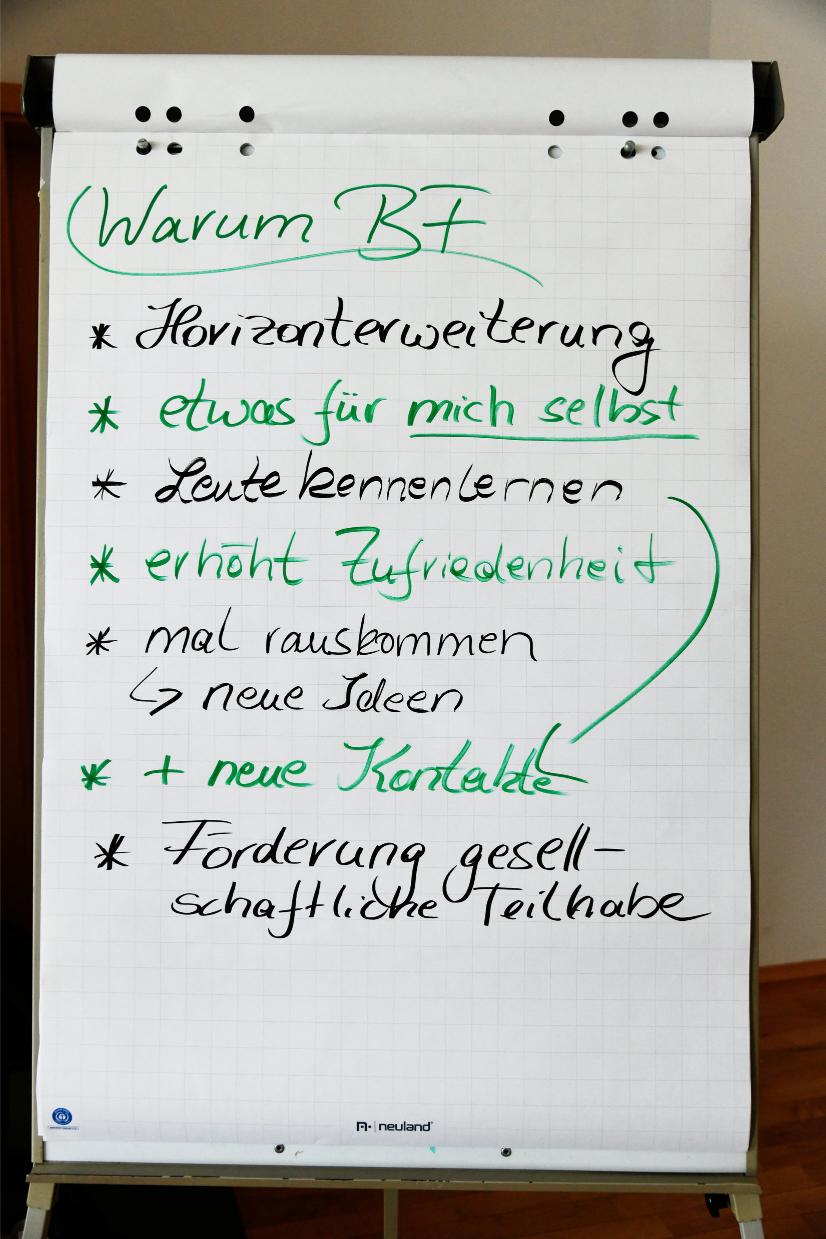 Warum BF
* Horizonterweiterung
* etwas für mich selbst
* Leute kennenlernen
* erhöht Zufriedenheit
* mal rauskommen
↳ neue Ideen
* + neue Kontakte
* Förderung gesell-
schaftliche Teilhabe
neuland